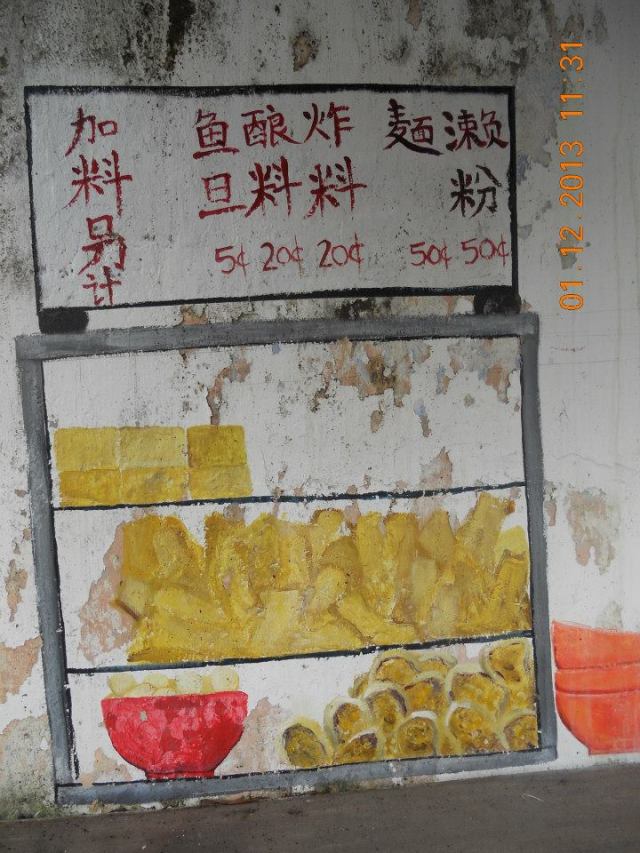 濑粉 50¢
麵 50¢
炸料 20¢
酿料 20¢
鱼旦 5¢
加料另计
01.12.2013 11:31